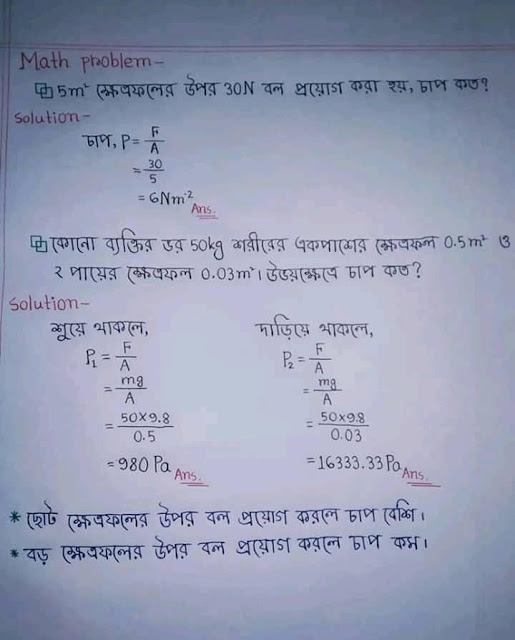 Math problem-
5m² ক্ষেত্রফলের উপর 30N বল প্রয়োগ করা হয়, চাপ কত?
Solution-
চাপ, P = F/A
= 30/5
= 6Nm⁻²
Ans.
কোনো ব্যক্তির ভর 50kg শরীরের একপাশের ক্ষেত্রফল 0.5m² ও
২ পায়ের ক্ষেত্রফল 0.03m²। উভয়ক্ষেত্রে চাপ কত?
Solution-
শুয়ে থাকলে,
P₁ = F/A
= mg/A
= 50×9.8/0.5
= 980 Pa Ans.
দাড়িয়ে থাকলে,
P₂ = F/A
= mg/A
= 50×9.8/0.03
= 16333.33 Pa Ans.
* ছোট ক্ষেত্রফলের উপর বল প্রয়োগ করলে চাপ বেশি।
* বড় ক্ষেত্রফলের উপর বল প্রয়োগ করলে চাপ কম।